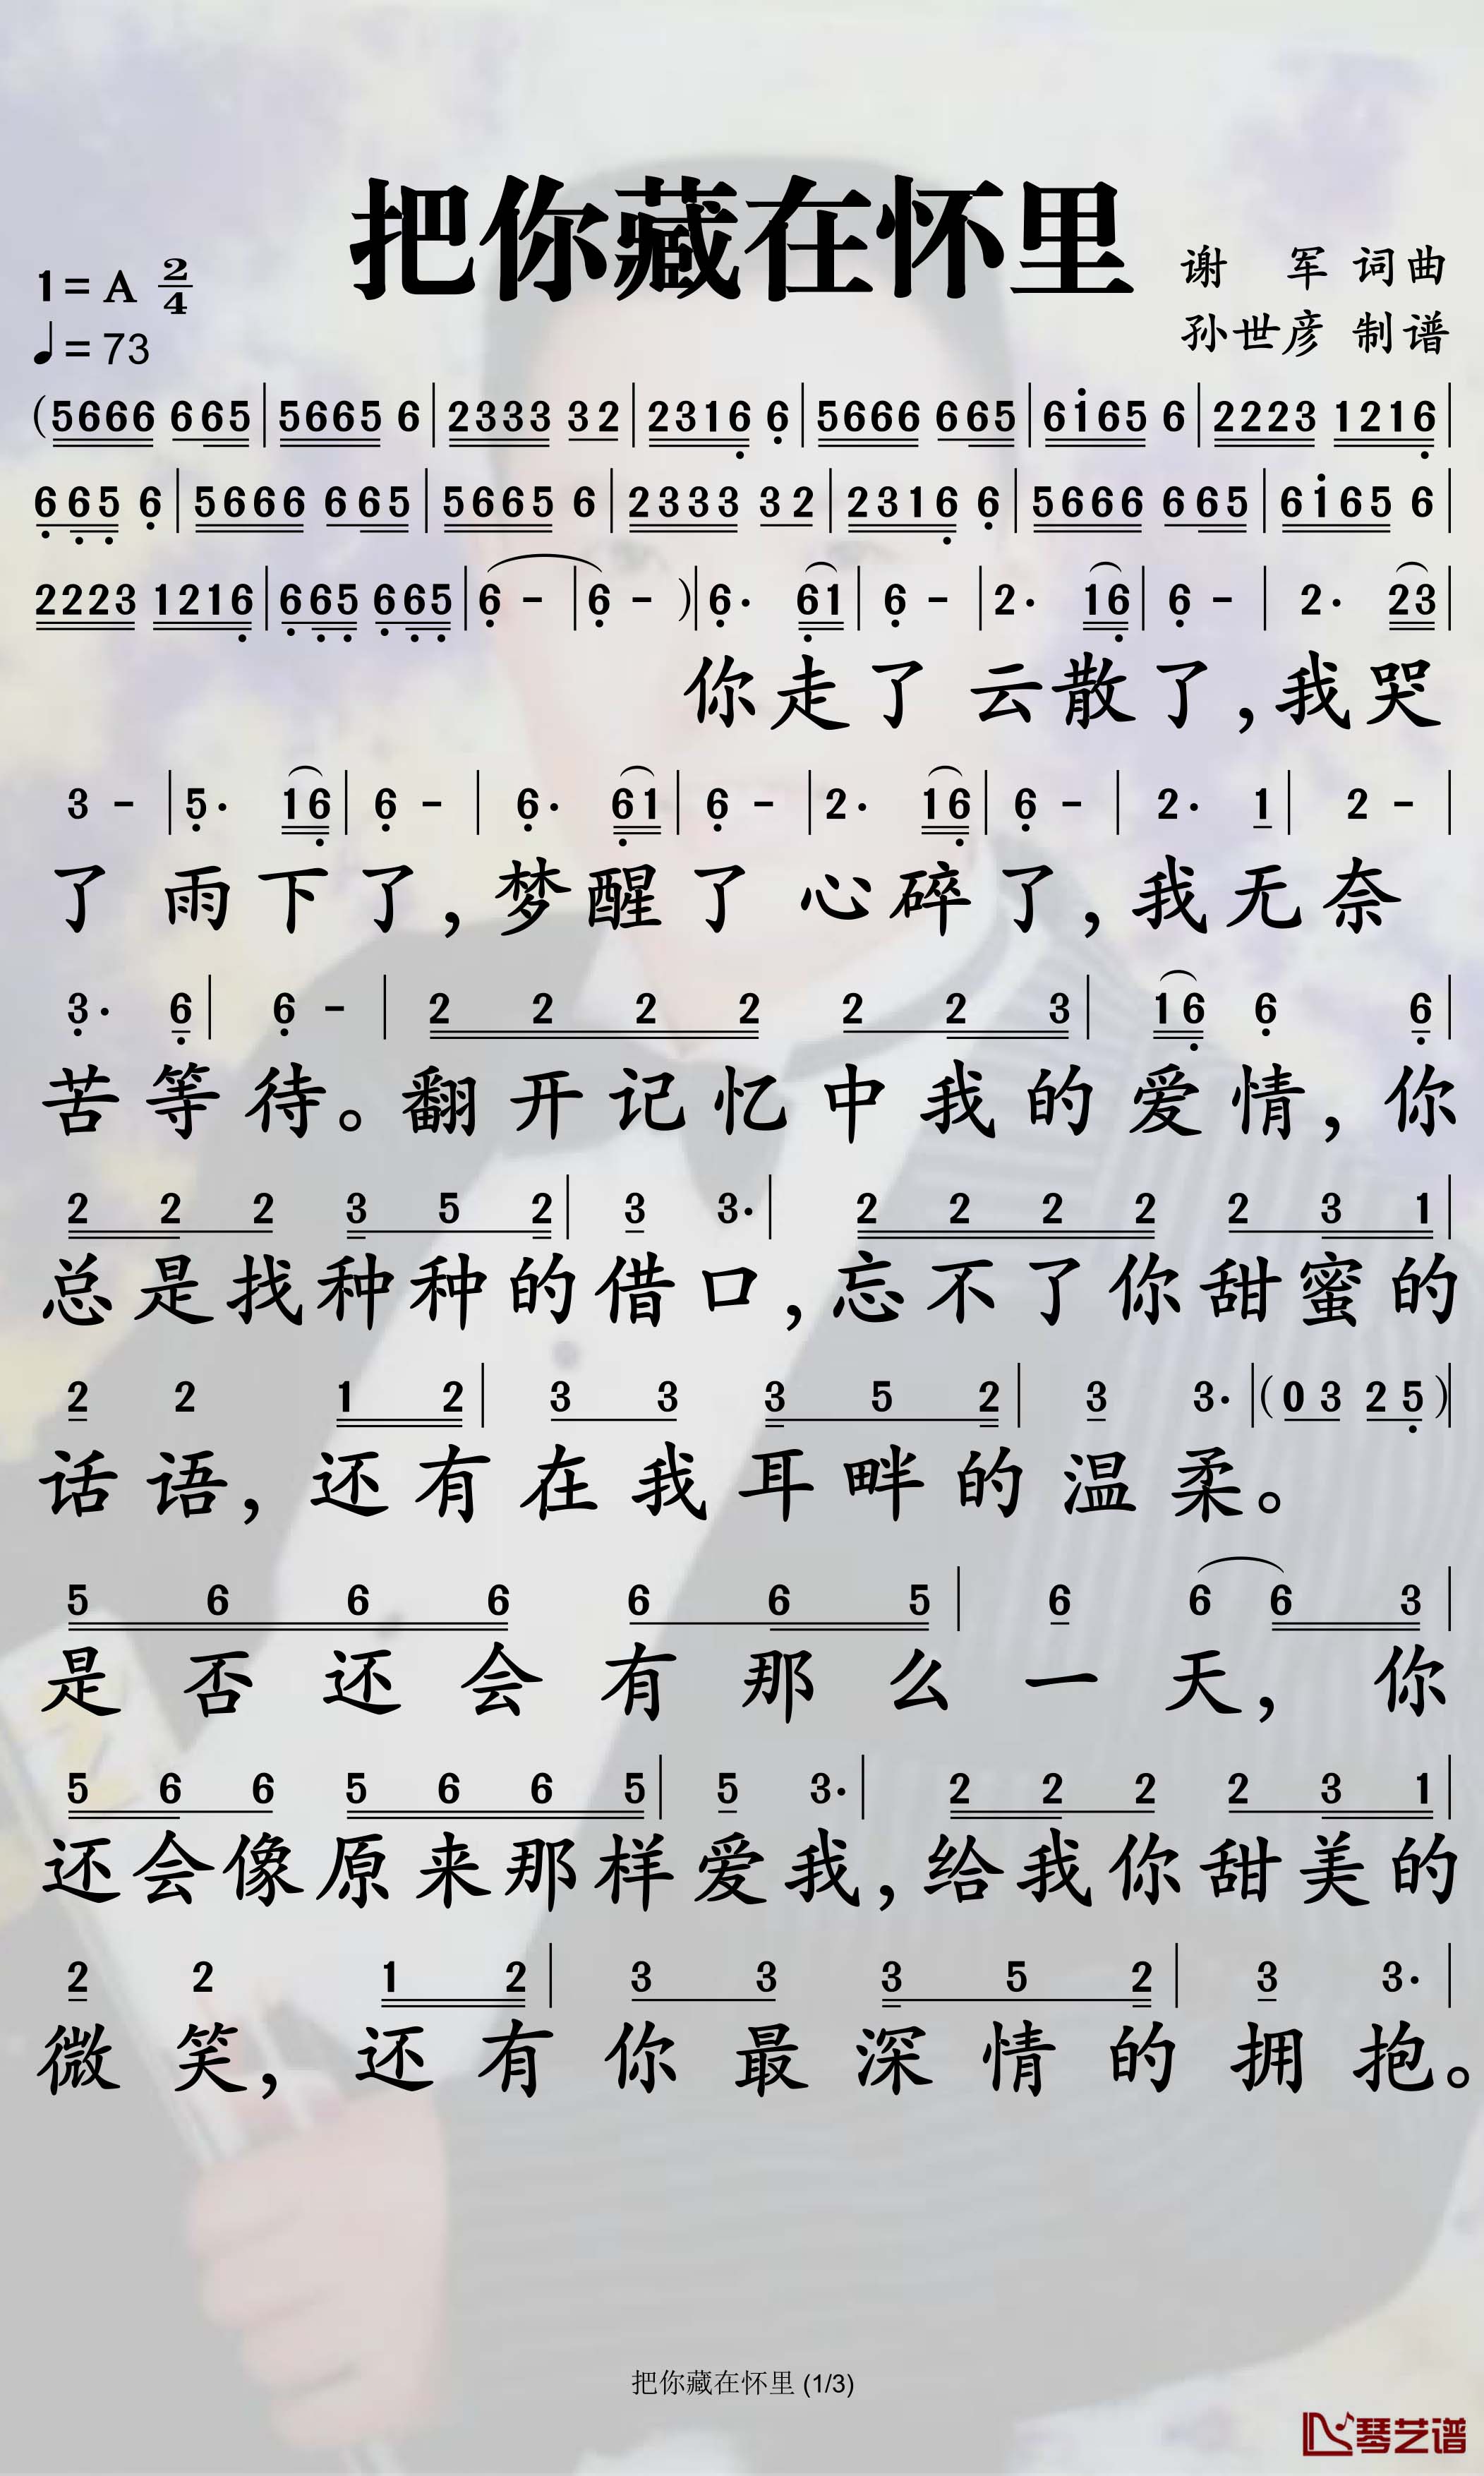 把你藏在怀里
1=A 2/4
♩=73
谢 军 词曲
孙世彦 制谱
(5666 665|5665 6|2333 32|2316 6|5666 665|6i65 6|2223 1216|
665 6|5666 665|5665 6|2333 32|2316 6|5666 665|6i65 6|
2223 1216|665 665|6 -|6 -)|6. 61|6 -|2. 16|6 -|2. 23|
你走了 云散了,我哭
3 -|5. 16|6 -|6. 61|6 -|2. 16|6 -|2. 1|2 -|
了 雨下了,梦醒了 心碎了,我无奈
3. 6|6 -|2 2 2 2 2 2 3|16 6 6|
苦等待。翻开记忆中我的爱情,你
2 2 2 3 5 2|3 3.|2 2 2 2 2 3 1|
总是找种种的借口,忘不了你甜蜜的
2 2 1 2|3 3 3 5 2|3 3.|(0 3 2 5)|
话语,还有在我耳畔的温柔。
5 6 6 6 6 6 5|6 6 6 3|
是否还会有那么一天,你
5 6 6 5 6 6 5|5 3.|2 2 2 2 3 1|
还会像原来那样爱我,给我你甜美的
2 2 1 2|3 3 3 5 2|3 3.|
微笑,还有你最深情的拥抱。
把你藏在怀里 (1/3)
琴艺谱